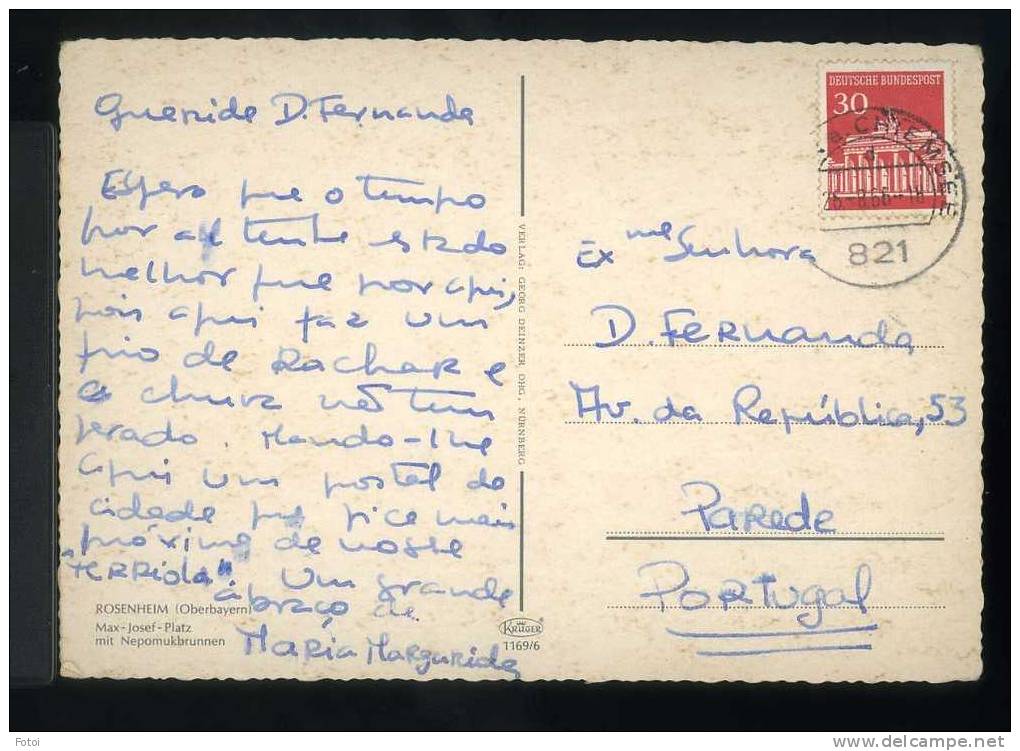 Querida D. Fernanda
Espero que o tempo
por aí tenha estado
melhor que por aqui,
pois aqui faz um
frio de Rachar e
a chuva não tem
parado. Mando-lhe
aqui um postal da
cidade que fica mais
próxima da nossa
"terriola". Um grande
abraço da
Maria Margarida
ROSENHEIM (Oberbayern)
Max-Josef-Platz
mit Nepomukbrunnen
VERLAG: GEORG DEINZER OHG, NÜRNBERG
KRÜGER
1169/6
DEUTSCHE BUNDESPOST
30
CHIEMSEE
821
Ex ma Senhora
D. Fernanda
Av. da República, 53
Parede
Portugal
Fotoi
www.delcampe.net